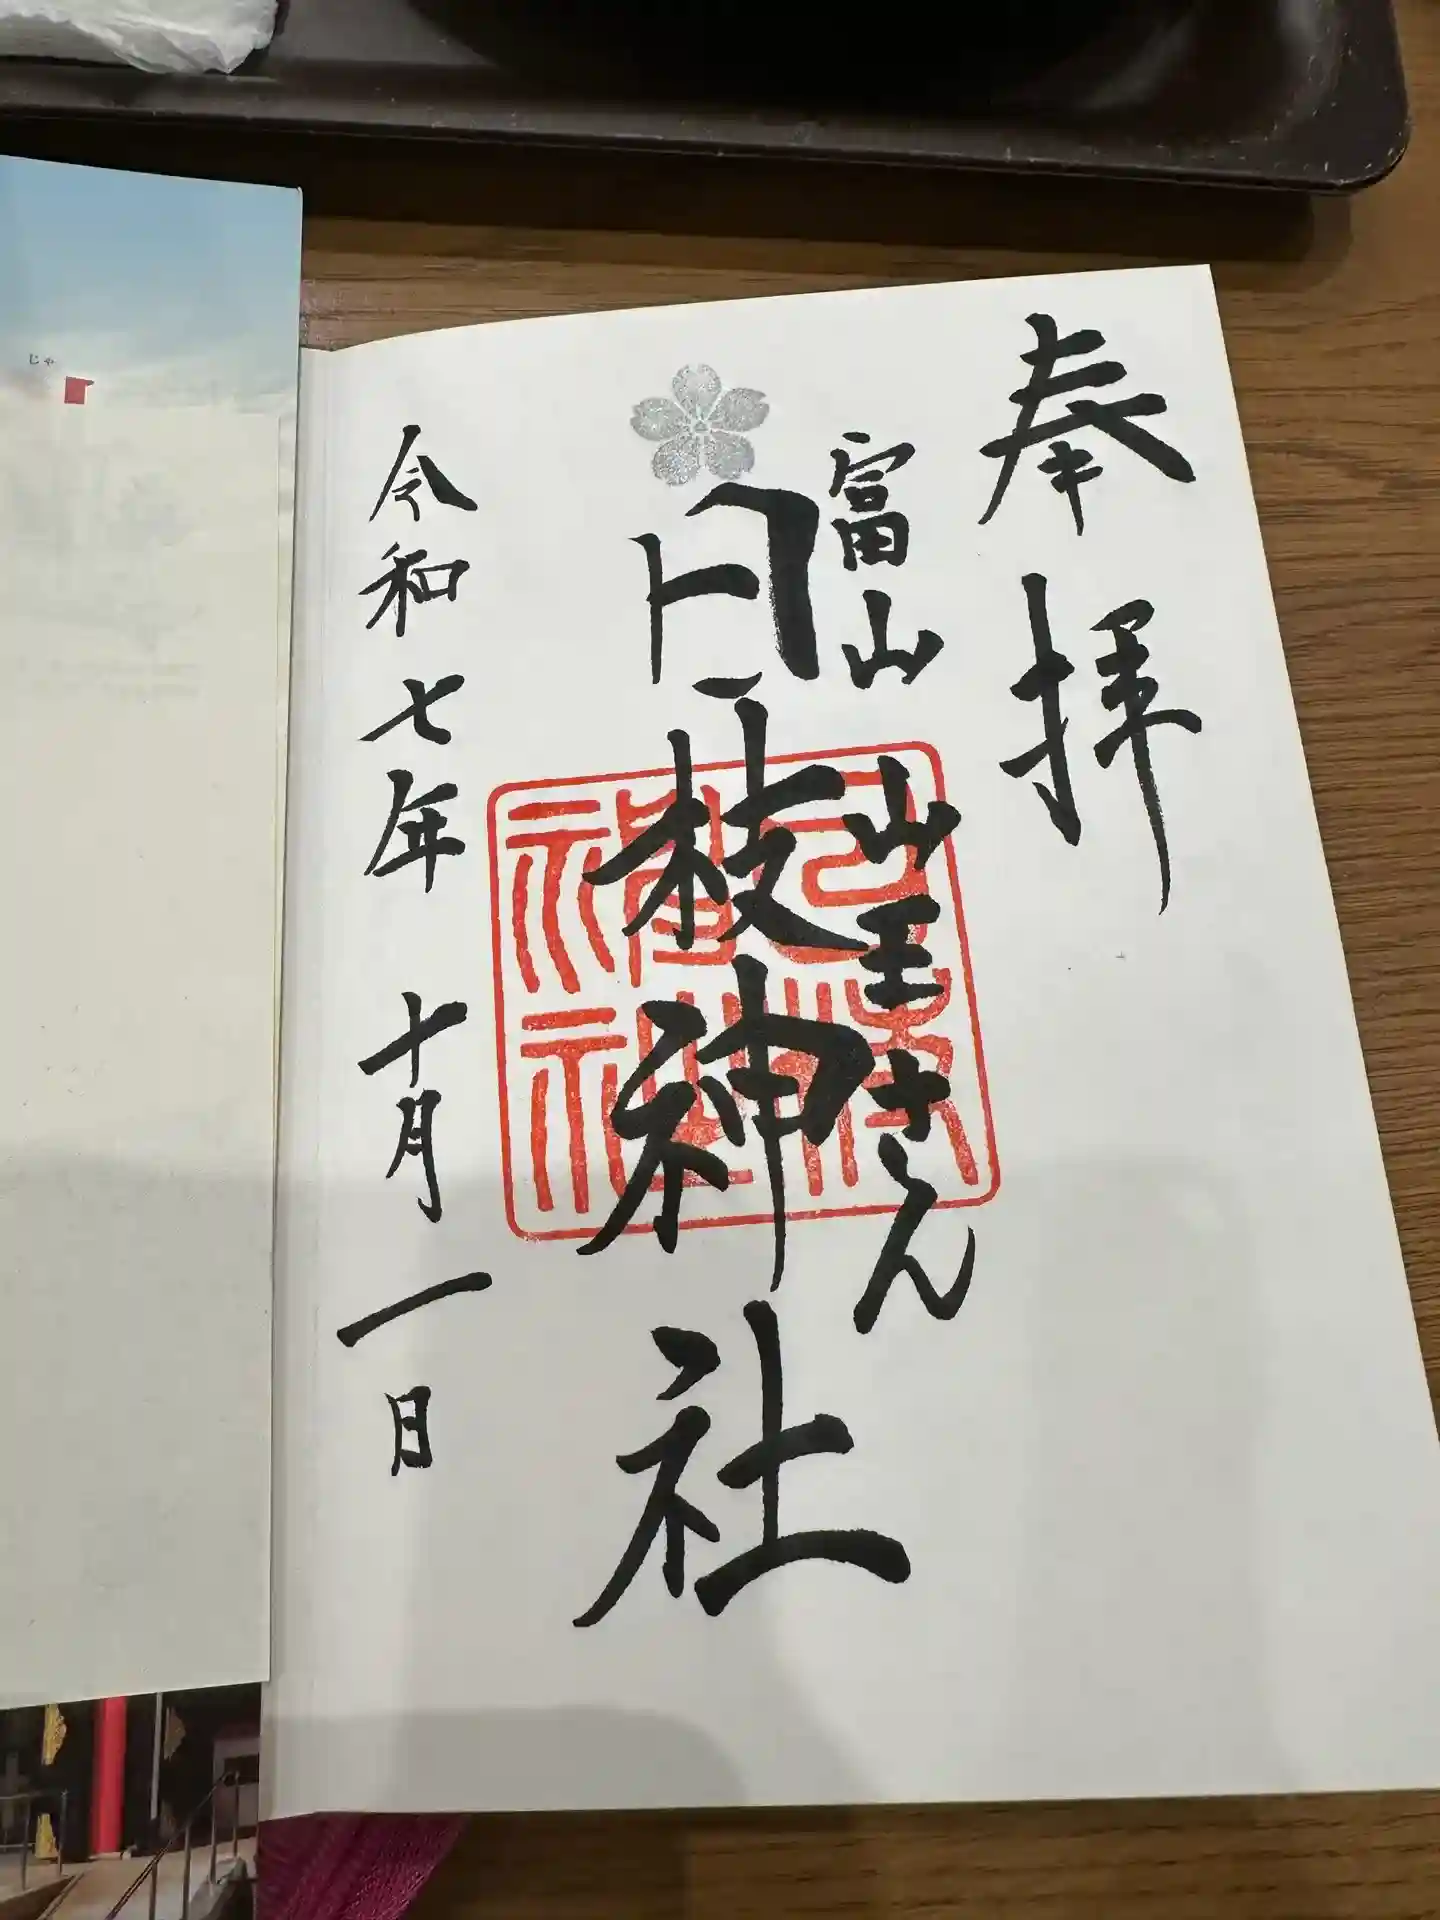 奉拝
富山 山王さん
日枝神社
令和七年 十月 一日
じゃ